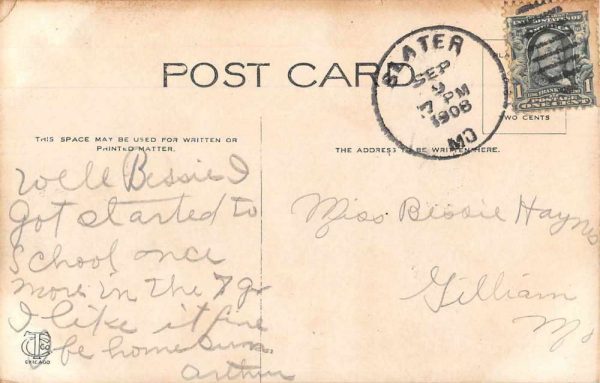 POST CARD
SLATER
SEP
9
7 PM
1908
MO
1
TWO CENTS
THIS SPACE MAY BE USED FOR WRITTEN OR
PRINTED MATTER.
THE ADDRESS TO BE WRITTEN HERE.
Well Bessie I
got started to
school once
more in the 7 gr
I like it fine
be home Sun.
Arthur
Miss Bessie Haynes
Gilliam
Mo
CHICAGO